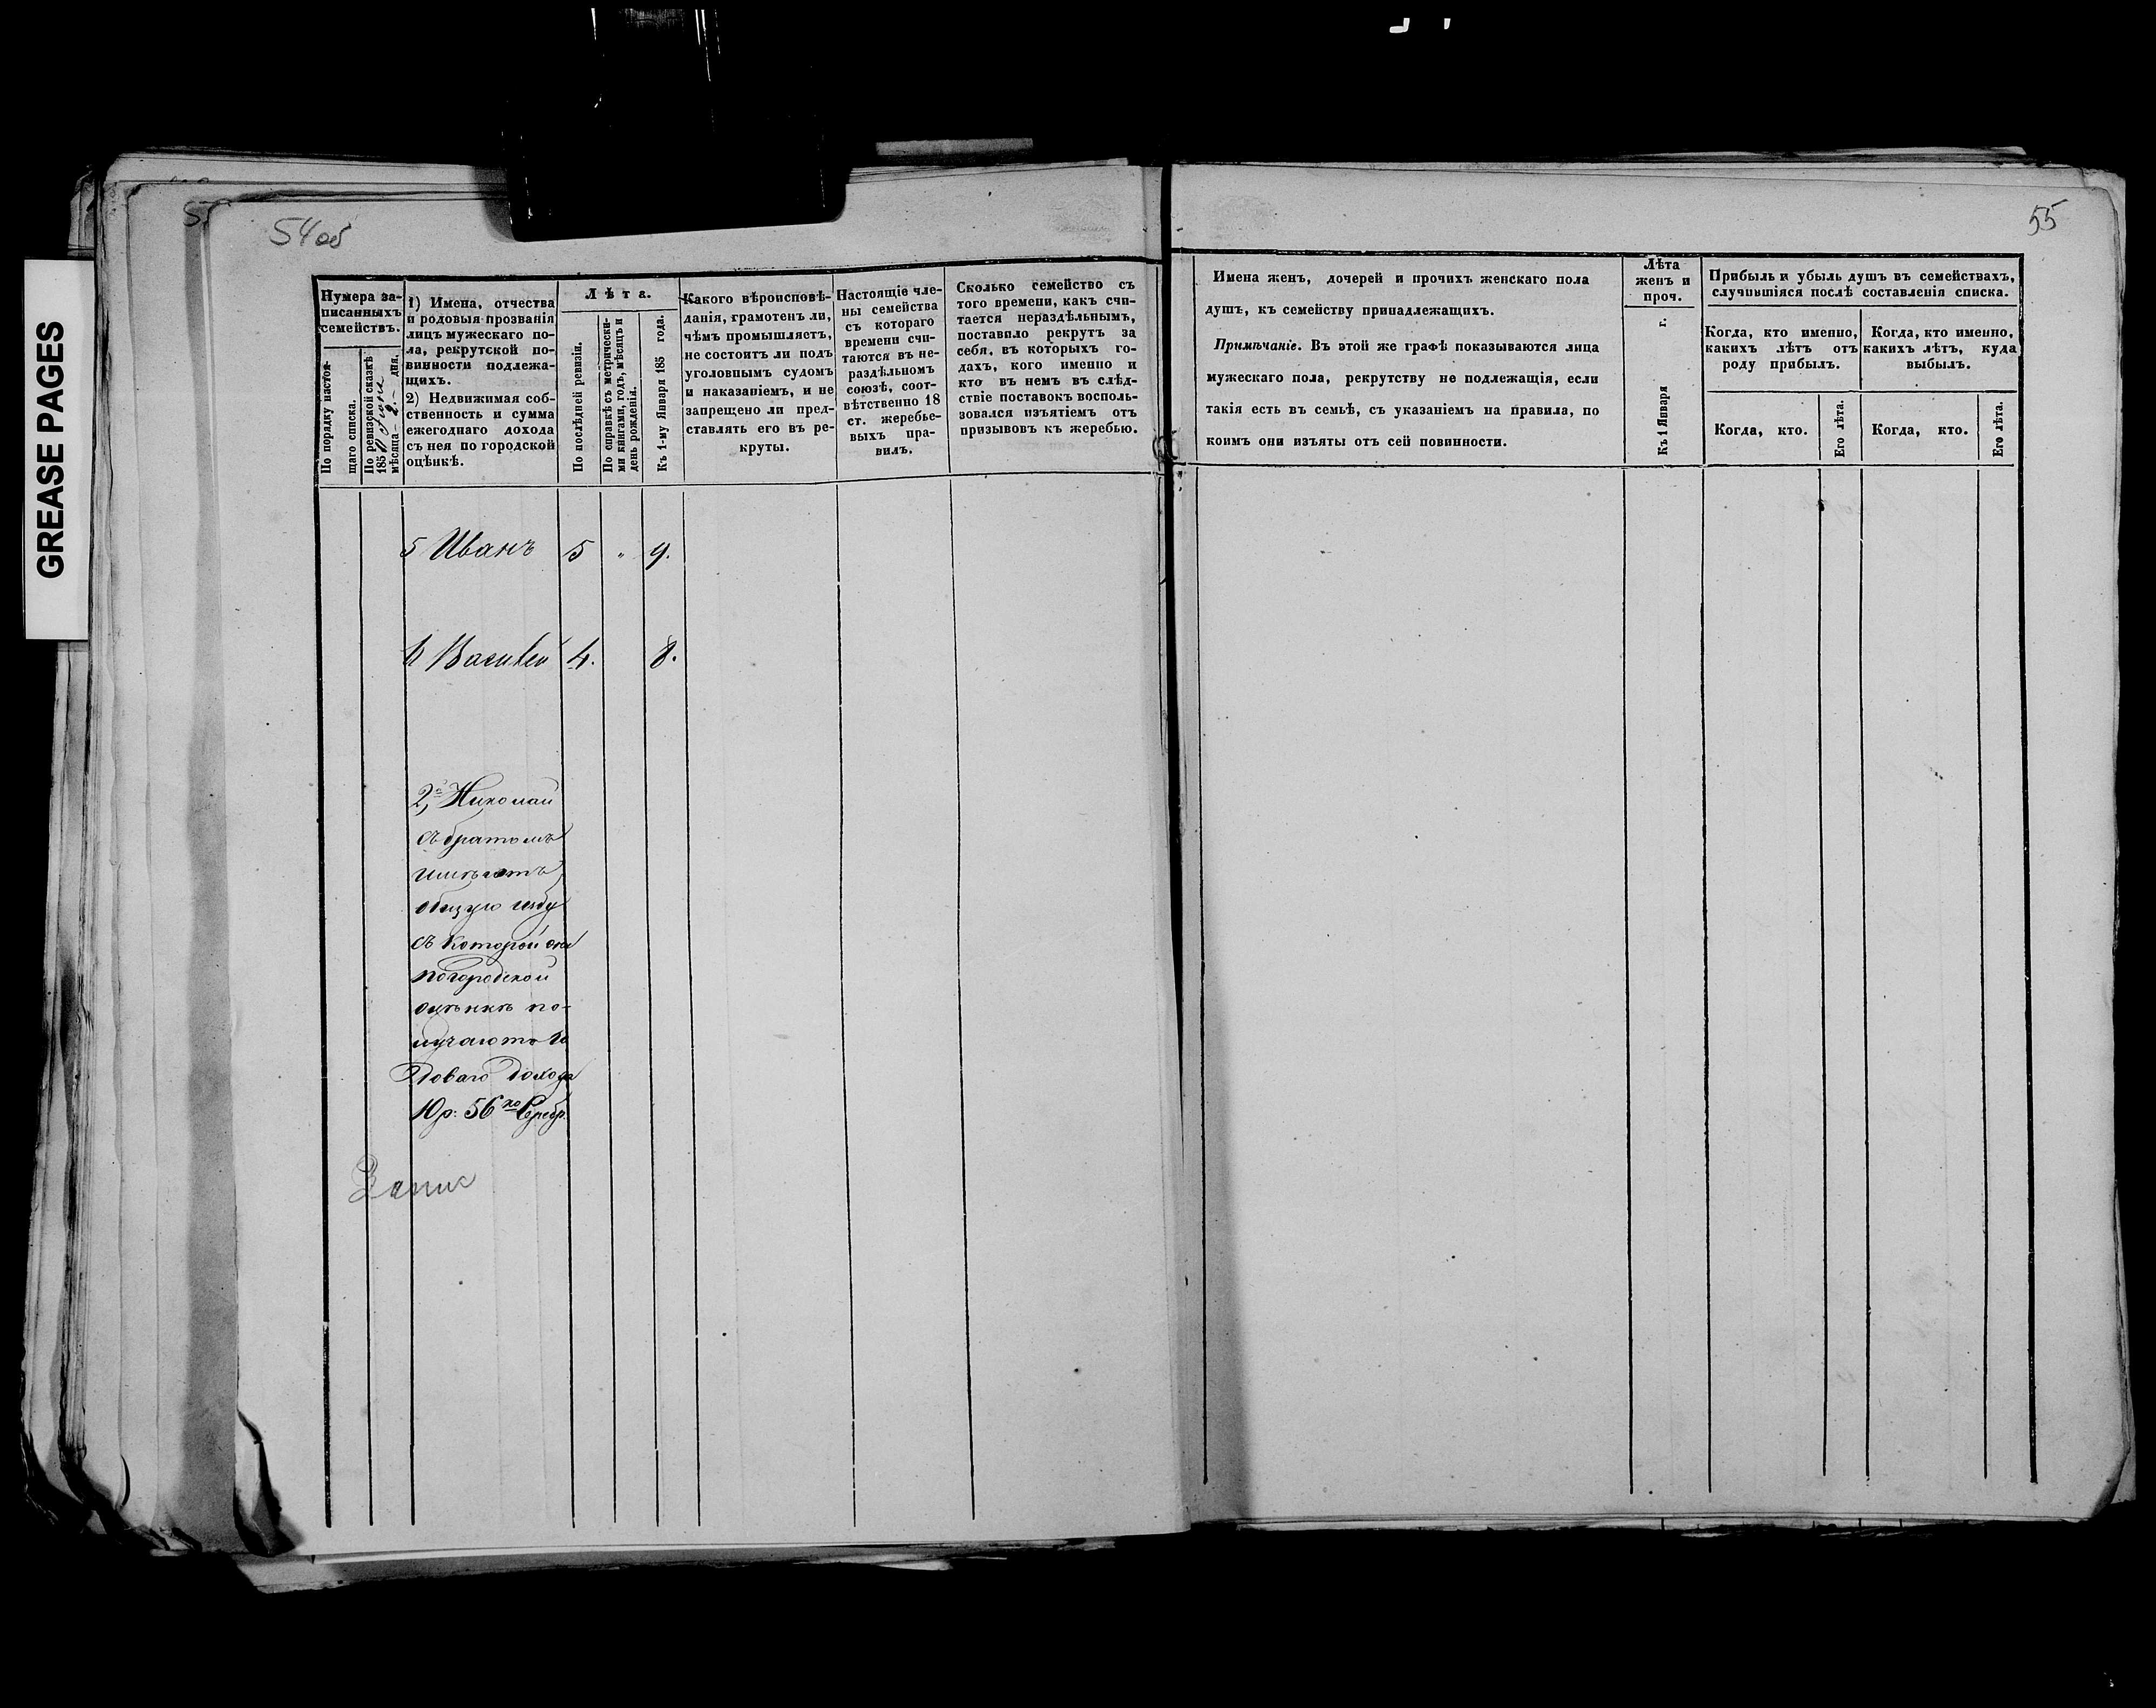 GREASE PAGES
54 об
55
Нумера за-
писанныхъ
семействъ.
По порядку настоя-
щаго списка.
По ревизской сказкѣ
185
мѣсяца 2 дня.
1) Имена, отчества
и родовыя прозванія
лицъ мужескаго по-
ла, рекрутской по-
винности подлежа-
щихъ.
2) Недвижимая соб-
ственность и сумма
ежегоднаго дохода
съ нея по городской
оцѣнкѣ.
Лѣта.
По послѣдней ревизіи.
По справкѣ съ метрически-
ми книгами, годъ, мѣсяцъ и
день рожденія.
Къ 1-му Января 185 года.
Какого вѣроисповѣ-
данія, грамотенъ ли,
чѣмъ промышляетъ,
не состоитъ ли подъ
уголовнымъ судомъ
и наказаніемъ, и не
запрещено ли пред-
ставлять его въ ре-
круты.
Настоящіе чле-
ны семейства
съ котораго
времени счи-
таются въ не-
раздѣльномъ
союзѣ, соот-
вѣтственно 18
ст. жеребье-
выхъ пра-
вилъ.
Сколько семейство съ
того времени, какъ счи-
тается нераздѣльнымъ,
поставило рекрутъ за
себя, въ которыхъ го-
дахъ, кого именно и
кто въ немъ въ слѣд-
ствіе поставокъ восполь-
зовался изъятіемъ отъ
призывовъ къ жеребью.
Имена женъ, дочерей и прочихъ женскаго пола
душъ, къ семейству принадлежащихъ.
Примѣчаніе. Въ этой же графѣ показываются лица
мужескаго пола, рекрутству не подлежащія, если
такія есть въ семьѣ, съ указаніемъ на правила, по
коимъ они изъяты отъ сей повинности.
Лѣта
женъ и
проч.
Къ 1 Января г.
Прибыль и убыль душъ въ семействахъ,
случившіяся послѣ составленія списка.
Когда, кто именно,
какихъ лѣтъ отъ
роду прибылъ.
Когда, кто именно,
какихъ лѣтъ, куда
выбылъ.
Когда, кто.
Его лѣта.
Когда, кто.
Его лѣта.
5 Иванъ 5 „ 9.
6 Василей 4. 8.
2, Николай
съ братомъ
имѣютъ
общую избу
съ которой они
по городской
оцѣнкѣ по-
лучаютъ го
доваго дохода
10 р: 56 ко Серебр.